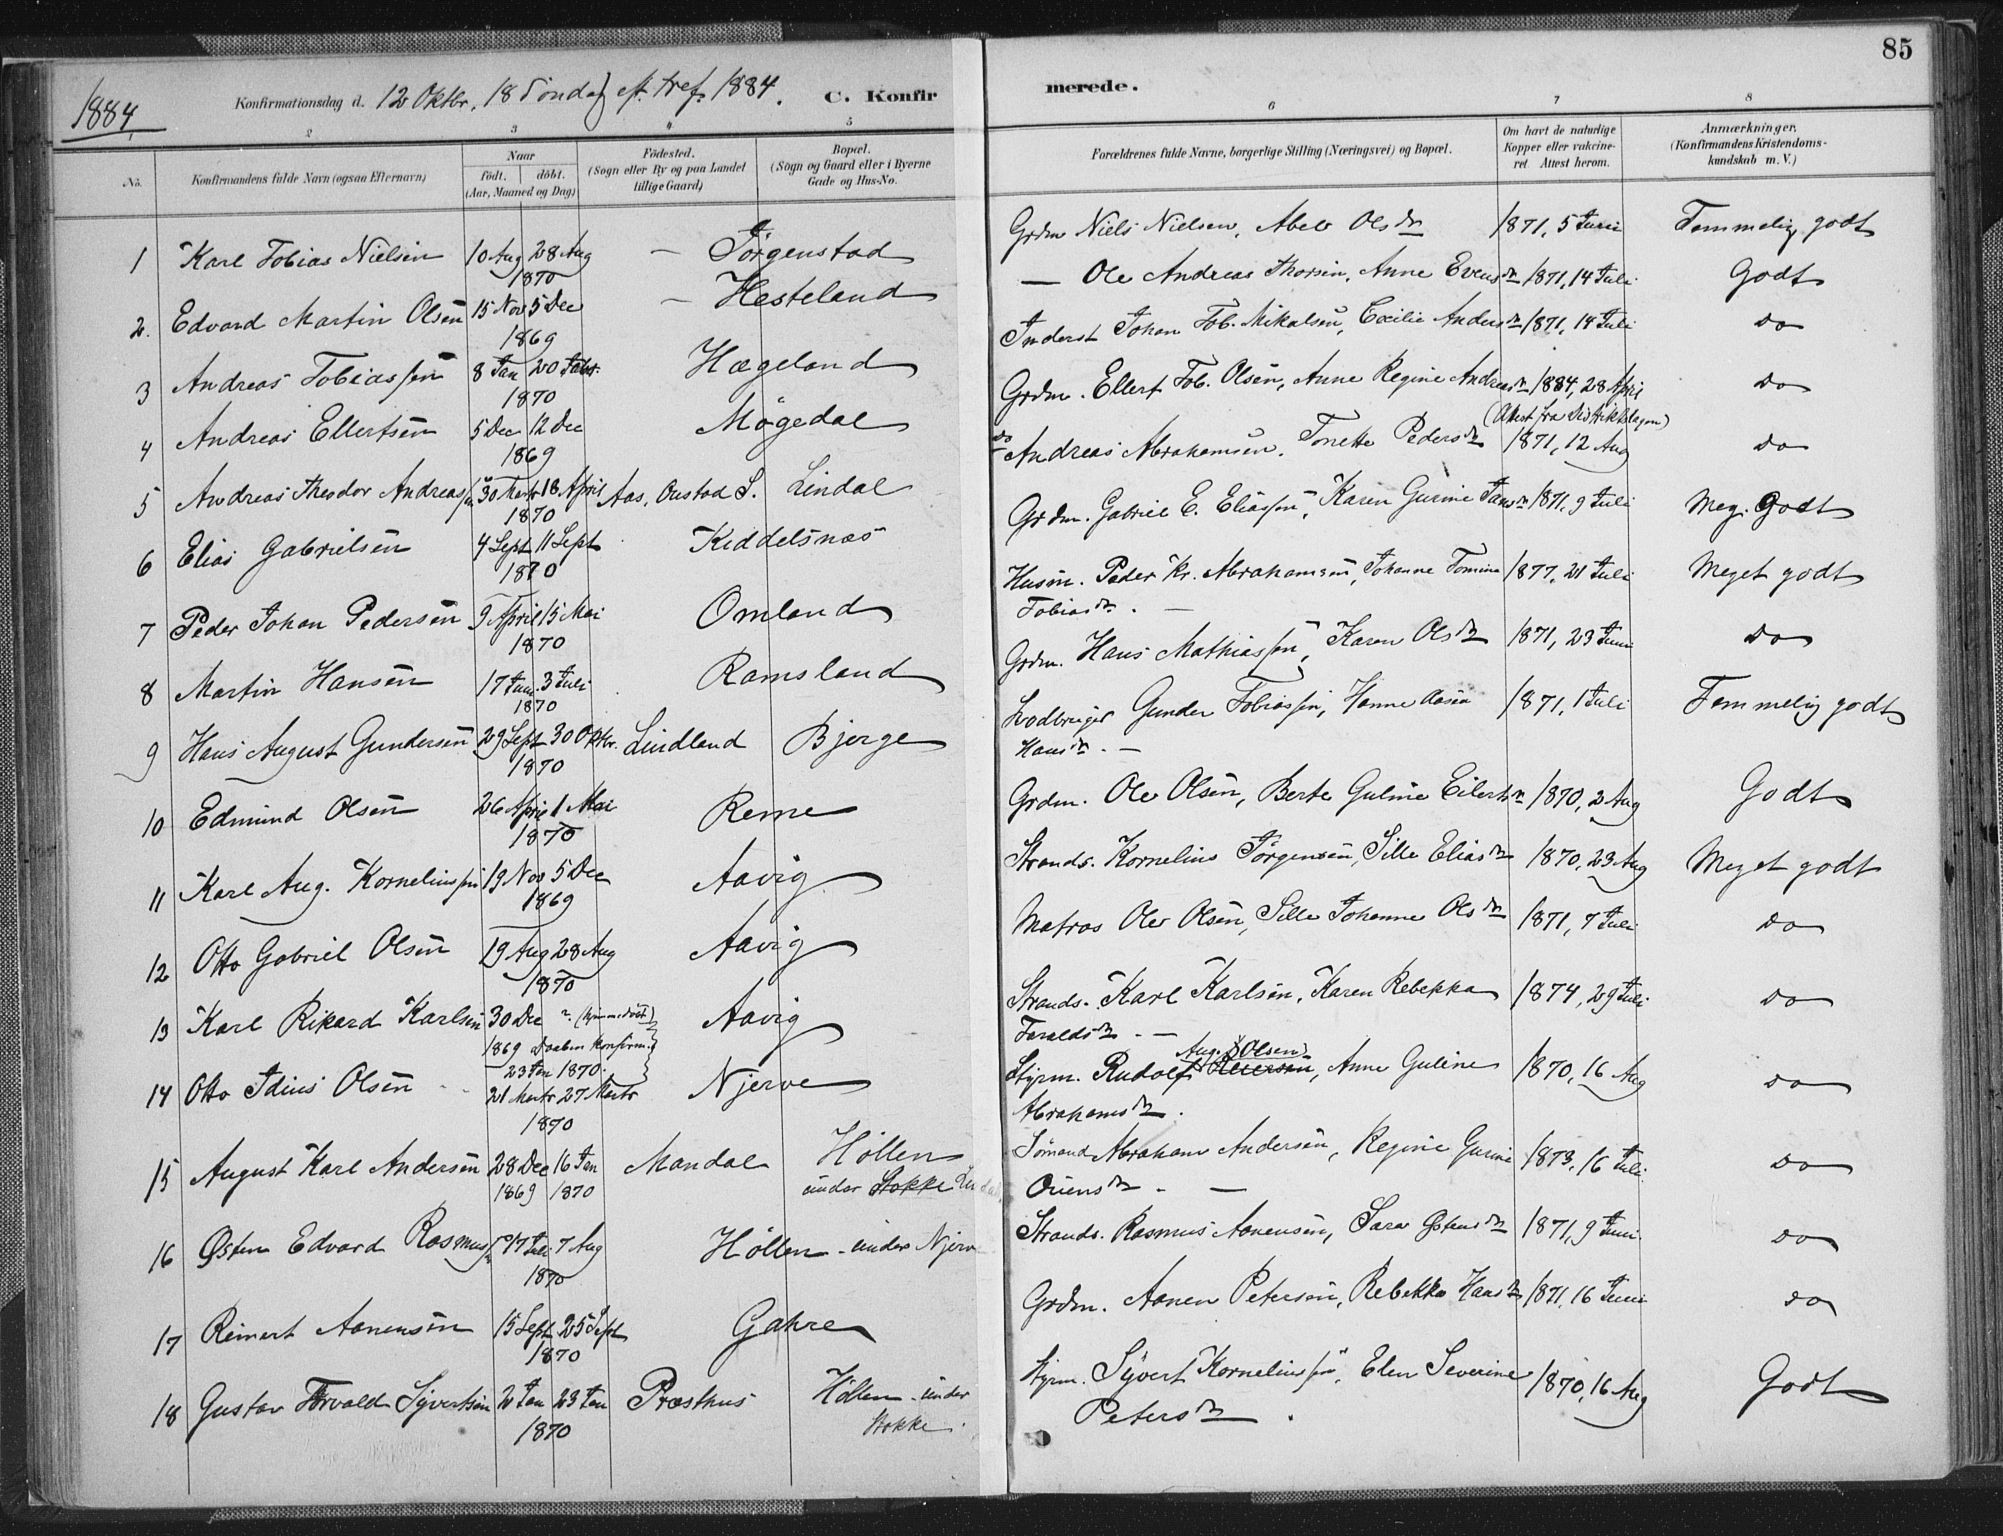 85
1884
Konfirmationsdag d. 12 Oktbr. 18 Söndag eft. tref. 1884. C. Konfirmerede.
2 3 4 5 6 7 8
No. Konfirmandens fulde Navn (ogsaa Efternavn) Naar födt. döbt. (Aar, Maaned og Dag) Födested. (Sogn eller By og paa Landet tillige Gaard) Bopæl. (Sogn og Gaard eller i Byerne Gade og Hus-No. Forældrenes fulde Navne, borgerlige Stilling (Næringsvei) og Bopæl. Om havt de naturlige Kopper eller vakcineret Attest herom. Anmærkninger. (Konfirmandens Kristendomskundskab m. V.)
1 Karl Tobias Nielsen 10 Aug 28 Aug 1870 — Jörgenstad Grdm Niels Nielsen, Abel Olsdr 1871, 5 Juni Temmelig godt
2. Edvard Martin Olsen 15 Nov 5 Dec 1869 — Hesteland — Ole Andreas Thorsen, Anne Evensdr 1871, 14 Juli Godt
3 Andreas Tobiassen 8 Jan 20 Febr. 1870 Hægeland Inderst Johan Tob. Mikalsen, Cecilie Andersdr 1871, 14 Juli do
4 Andreas Ellertsen 5 Dec 12 Dec 1869 Møgedal Grdm. Ellert Tob. Olsen, Anne Regine Andreasdr 1884, 28 April (Attest fra Distriktslægen) do
5 Andreas Theodor Andreassen 30 Marts 18 April 1870 Aas, Oustad S. Lindal do Andreas Abrahamsen. Tonette Pedersdr 1871, 12 Aug do
6 Elias Gabrielsen 4 Sept 11 Sept 1870 Kiddelsnæs Grdm. Gabriel E. Eliassen, Karen Gurine Jansdr 1871, 9 Juli Meg. Godt
7 Peder Johan Pedersen 9 April 15 Mai 1870 Omland Husm. Peder Kr. Abrahamsen, Johanne Tomine Tobiasdr. — 1877, 21 Juli Meget godt
8 Martin Hansen 17 Juni 3 Juli 1870 Ramsland Grdm. Hans Mathiassen, Karen Olsdr 1871, 23 Juni do
9 Hans August Gundersen 29 Sept 30 Oktbr. 1870 Lindland Bjerge Gunder Tobiassen, Hanne Aasen Hansdr. — 1871, 1 Juli Temmelig godt
10 Edmund Olsen 26 April 1 Mai 1870 Reme Grdm. Ole Olsen, Berte Guline Eilertsdr 1870, 2 Aug Godt
11 Karl Aug. Korneliussen 19 Nov 5 Dec 1869 Aavig Strands. Kornelius Jörgensen, Sille Eliasdr 1870, 23 Aug Meget godt
12 Otto Gabriel Olsen 19 Aug 28 Aug 1870 Aavig Matros Ole Olsen, Sille Johanne Olsdr 1871, 7 Juli do
13 Karl Rikard Karlsen 30 Dec 1869 ?. (hjemmedöbt) Daaben konfirm. 23 Jan 1870. Aavig Strands. Karl Karlsen, Karen Rebekka Taraldsdr. — 1874, 29 Juli do
14 Otto Idius Olsen 21 Marts 27 Marts 1870 Njerve Styrm. Rudolf Aug. Olsen, Anne Guline Abrahamsdr. 1870, 16 Aug do
15 August Karl Andersen 28 Dec 1869 16 Jan 1870 Mandal Höllen under Stokke Sömand Abraham Andersen, Regine Gurine Ouensdr. — 1873, 16 Juli do
16 Østen Edvard Rasmussen 17 Juli 7 Aug 1870 Höllen under Njerve Strands. Rasmus Aanensen, Sara Østensdr 1871, 9 Juni do
17 Reinert Aanensen 15 Sept 25 Sept 1870 Gahre Grdm. Aanen Petersen, Rebekka Hansdr 1871, 16 Juni do
18 Gustav Torvald Syvertsen 2 Jan 23 Jan 1870 Præsthus Höllen under Stokke. Styrm. Syvert Korneliussen, Elen Severine Petersdr. 1870, 16 Aug Godt